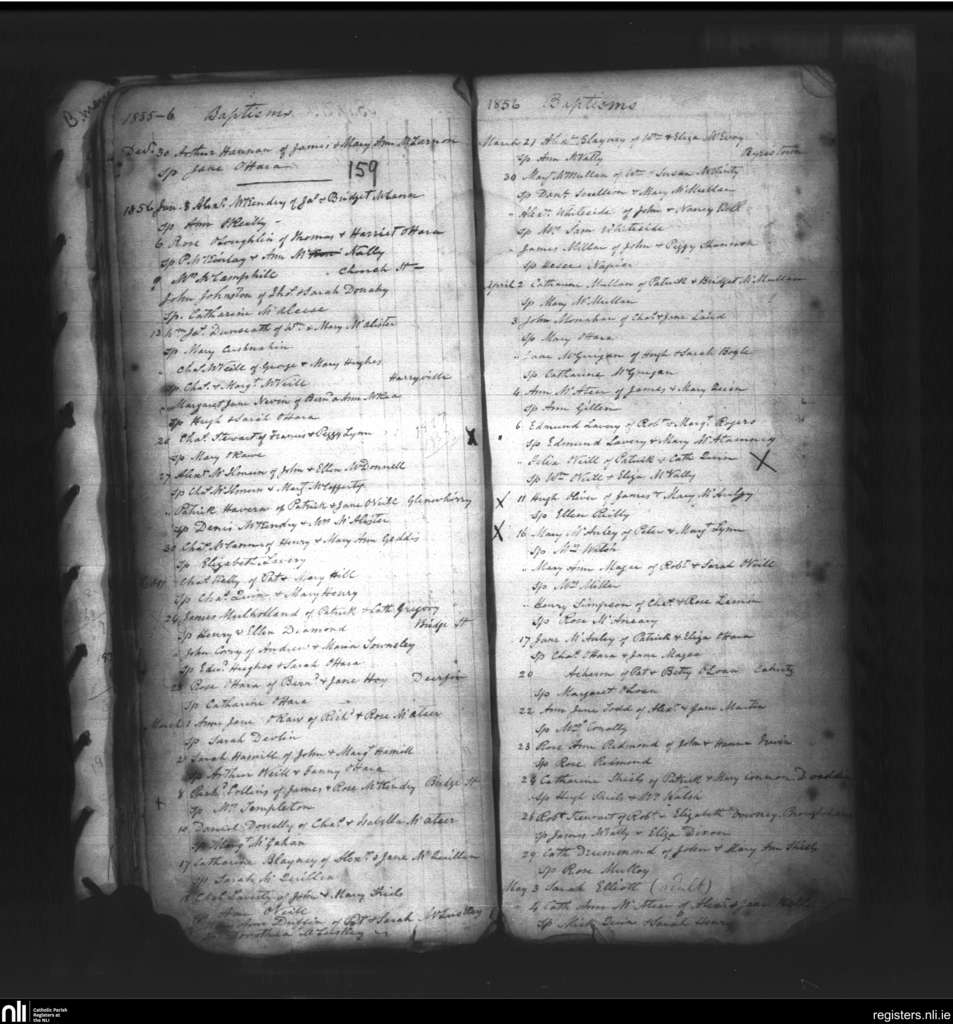 1855-6 Baptisms
Decr 30 Arthur Hannan of James & Mary Ann McLarnon
Sp Jane O'Hara
159
1856 Jan. 3 Alexr McKendry of Jas & Bridget
Sp Ann O'Reilly
6 Rose O'Loughlin of Thomas & Harriet O'Hara
Sp P. McKinlay & Ann Nally
9 Wm McLamphill Church St
John Johnston of Thos & Sarah Donahy
Sp. Catharine McAleese
13 Wm Jas Dunseath of Wm & Mary McAlister
Sp Mary Cushnahin
" Chas McNeill of George & Mary Hughes
Sp Chas & Margt McNeill Harryville
" Margaret Jane Nevin of Bernd & Ann
Sp Hugh & Sarah O'Hara
20 Chas Stewart of Francis & Peggy Lynn
Sp Mary O'Kane
27 Alexr of John & Ellen McDonnell
Sp Chas & Margt McCafferty
" Patrick Havern of Patrick & Jane O'Neill Glenwhirry
Sp Denis McKendry & Mrs McAlister
30 Chas of Henry & Mary Ann Geddis
Sp. Elizabeth Lavery
Chas Kelly of Pat & Mary Hill
Sp Chas Quin & Mary Henry
24 James Mulholland of Patrick & Cath Gregory
Sp Henry & Ellen Diamond Bridge St
" John Corry of Andrew & Maria Townsley
Sp Edwd Hughes & Sarah O'Hara
28 Rose O'Hara of Bernd & Jane Hoy
Sp Catharine O'Hara
March 1 Ann Jane O'Kane of Richd & Rose McAteer
Sp Sarah Devlin
2 Sarah Hamill of John & Margt Hamill
Sp Arthur Neill & Fanny O'Hara
8 Collins of James & Rose McKendry Bridge St
Sp Mrs Templeton
10 Daniel Donelly of Chas & Isabella McAteer
Sp Margt McGahan
17 Catharine Blayney of Alexr & Jane McQuillan
Sp Sarah McQuillan
18 Laverty of John & Mary Shiels
Ann O'Neill
Ann of Pat & Sarah McCluskey
McCluskey
1856 Baptisms
March 21 Alexr Blayney of Wm & Eliza McEvoy
Sp Ann McNally
30 Margt McMullan of Wm & Susan
Sp Danl & Mary McMullan
" Alexr Whiteside of John & Nancy Bell
Sp Mrs Sam Whiteside
" James Millar of John & Peggy Shannon
Sp Napier
April 2 Catharine Mullan of Patrick & Bridget McMullan
Sp Mary McMullan
3 John Monahan of Chas & Jane Laird
Sp Mary O'Hara
" Jane McGuigan of Hugh & Sarah Bogle
Sp Catharine McGuigan
4 Ann McAteer of James & Mary Quin
Sp Ann Gillen
6 Edmund Lavery of Robt & Margt Rogers
Sp Edmund Lavery & Mary
" Felix O'Neill of Patrick & Cath Quin
Sp Wm O'Neill & Eliza McNally
11 Hugh Oliver of James & Mary McAuley
Sp Ellen Reilly
16 Mary McAuley of Peter & Margt Lynn
Sp Mrs Walsh
" Mary Ann Magee of Robt & Sarah O'Neill
Sp Mrs Millar
" Henry Simpson of Chas & Rose Lemon
Sp Rose McAreavy
17 Jane McAuley of Patrick & Eliza O'Hara
Sp Chas O'Hara & Jane Magee
20 Acheson of Pat & Betty O'Loan
Sp Margaret O'Loan
22 Ann Jane Todd of Alexr & Jane Martin
Sp Mrs Conolly
23 Rose Ann Redmond of John & Hanna Irwin
Sp Rose Redmond
24 Catharine Shiels of Patrick & Mary Connon
Sp Hugh Shiels & Mrs Walsh
26 Robt Stewart of Robt & Elizabeth Downey
Sp James McNally & Eliza Dixon
29 Cath Drummond of John & Mary Ann Shiels
Sp Rose Mulloy
May 3 Sarah Elliott (adult)
4 Cath Ann McAteer of Alexr & Jane
Sp Mick Quin & Sarah
nli
Catholic Parish
Registers at
the NLI
registers.nli.ie